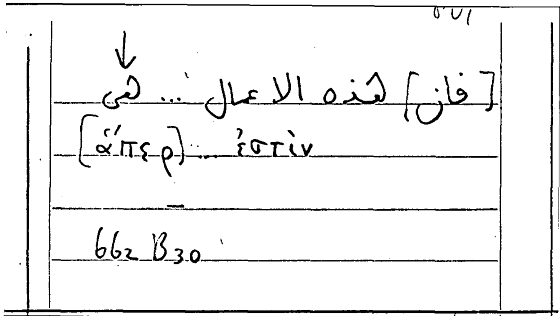 ↓
[فان] هذه الاعمال ... هي
[ἅπερ] ... ἐστὶν
662 B30